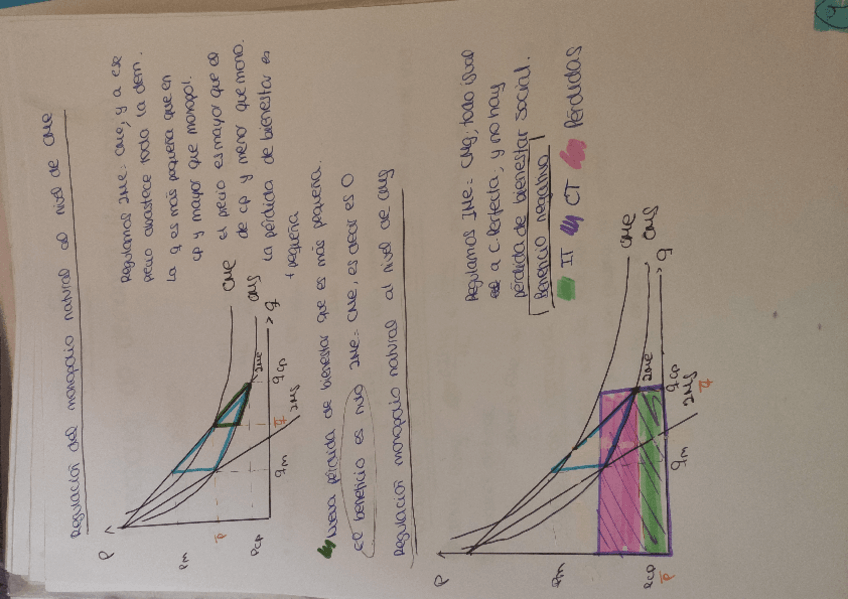 Regulación del monopolio natural al nivel de CMe
Regulamos IMe = CMe, y a ese
precio abastece toda la dem.
La q es más pequeña que en
cp y mayor que monopol.
el precio es mayor que el
de cp y menor que mono.
la pérdida de bienestar es
+ pequeña
P
Pm
P̄
Pcp
CMe
CMg
IMe
IMg
qm
q̄
qcp
q
Nueva pérdida de bienestar que es más pequeña.
el beneficio es nulo IMe = CMe, es decir es 0
Regulación monopolio natural al nivel de CMg
Regulamos IMe = CMg; todo igual
a C. Perfecta, y no hay
pérdida de bienestar social.
Beneficio negativo
IT CT Pérdidas
P
Pm
Pcp
P̄
CMe
CMg
IMe
IMg
qm
qcp
q̄
q